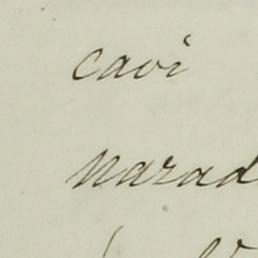 cavi
narad